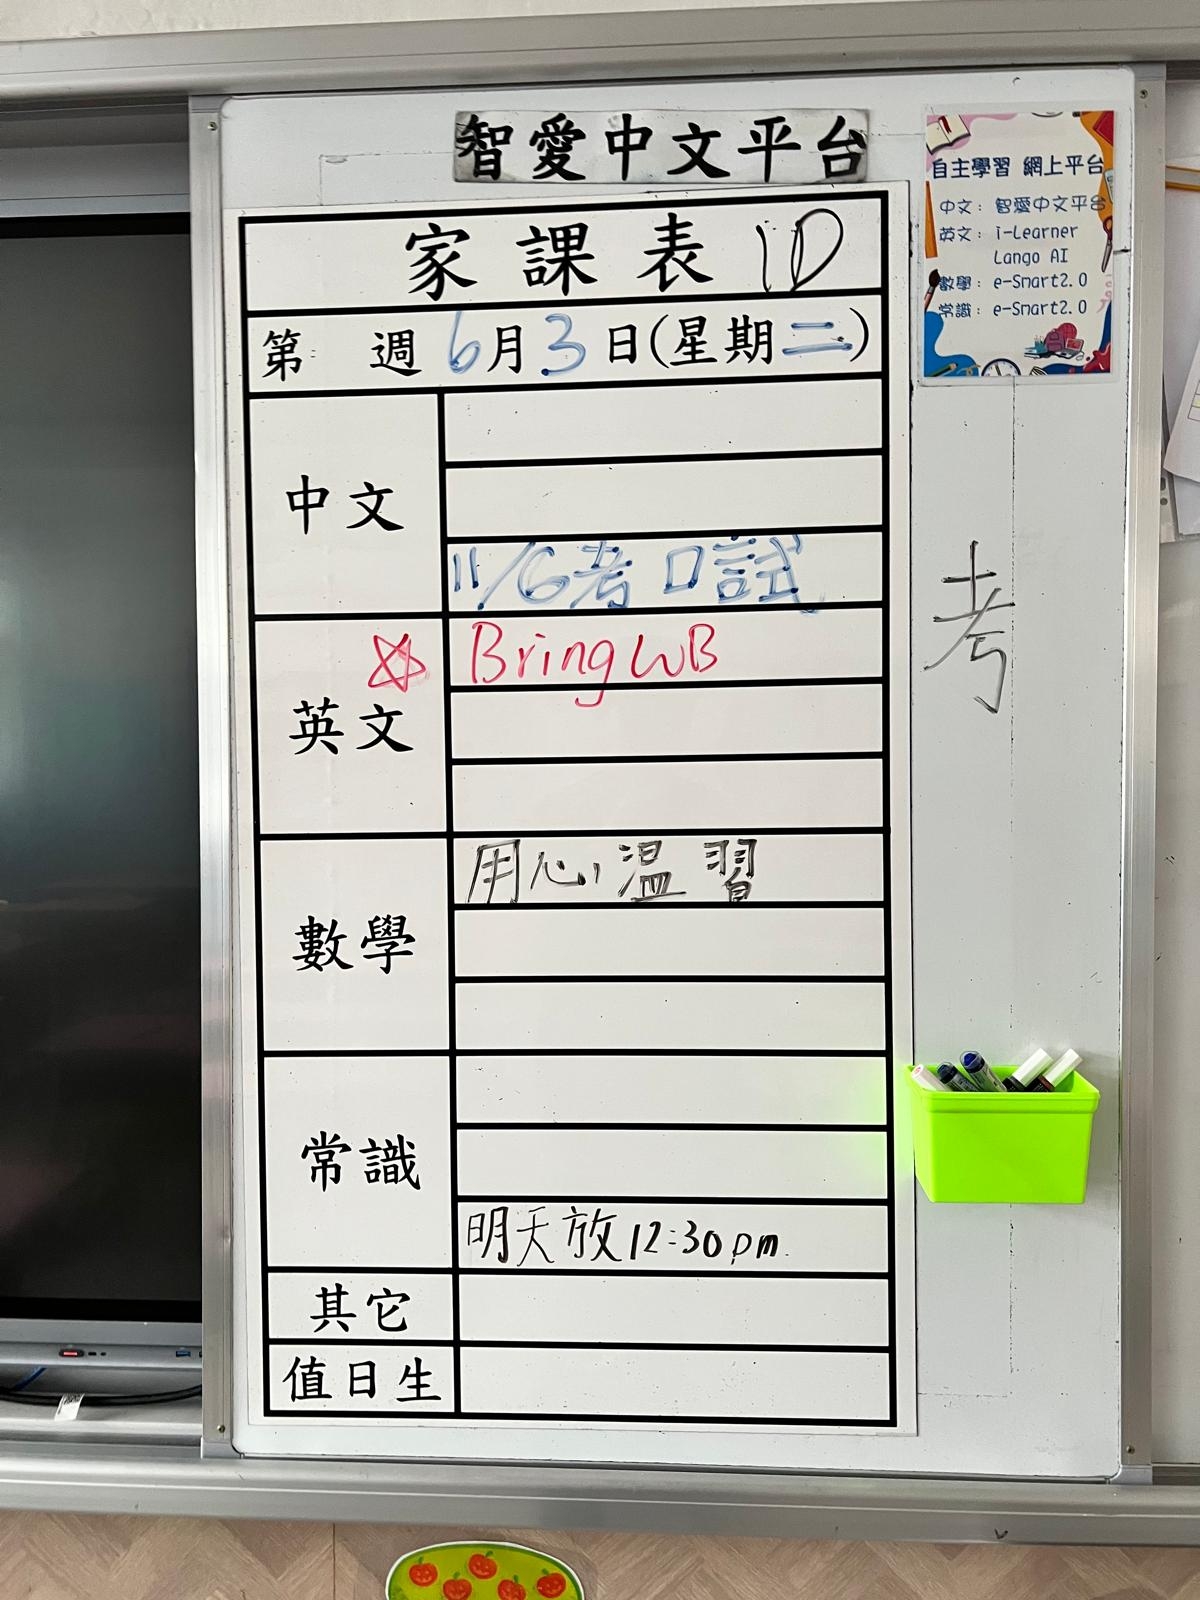 智愛中文平台
家課表 1D
第 週 6月3日(星期二)
中文
11/6考口試
英文
☆ Bring WB
數學
用心溫習
常識
明天放12:30pm.
其它
值日生
自主學習 網上平台
中文: 智愛中文平台
英文: i-Learner
Lango AI
數學: e-Smart2.0
常識: e-Smart2.0
考